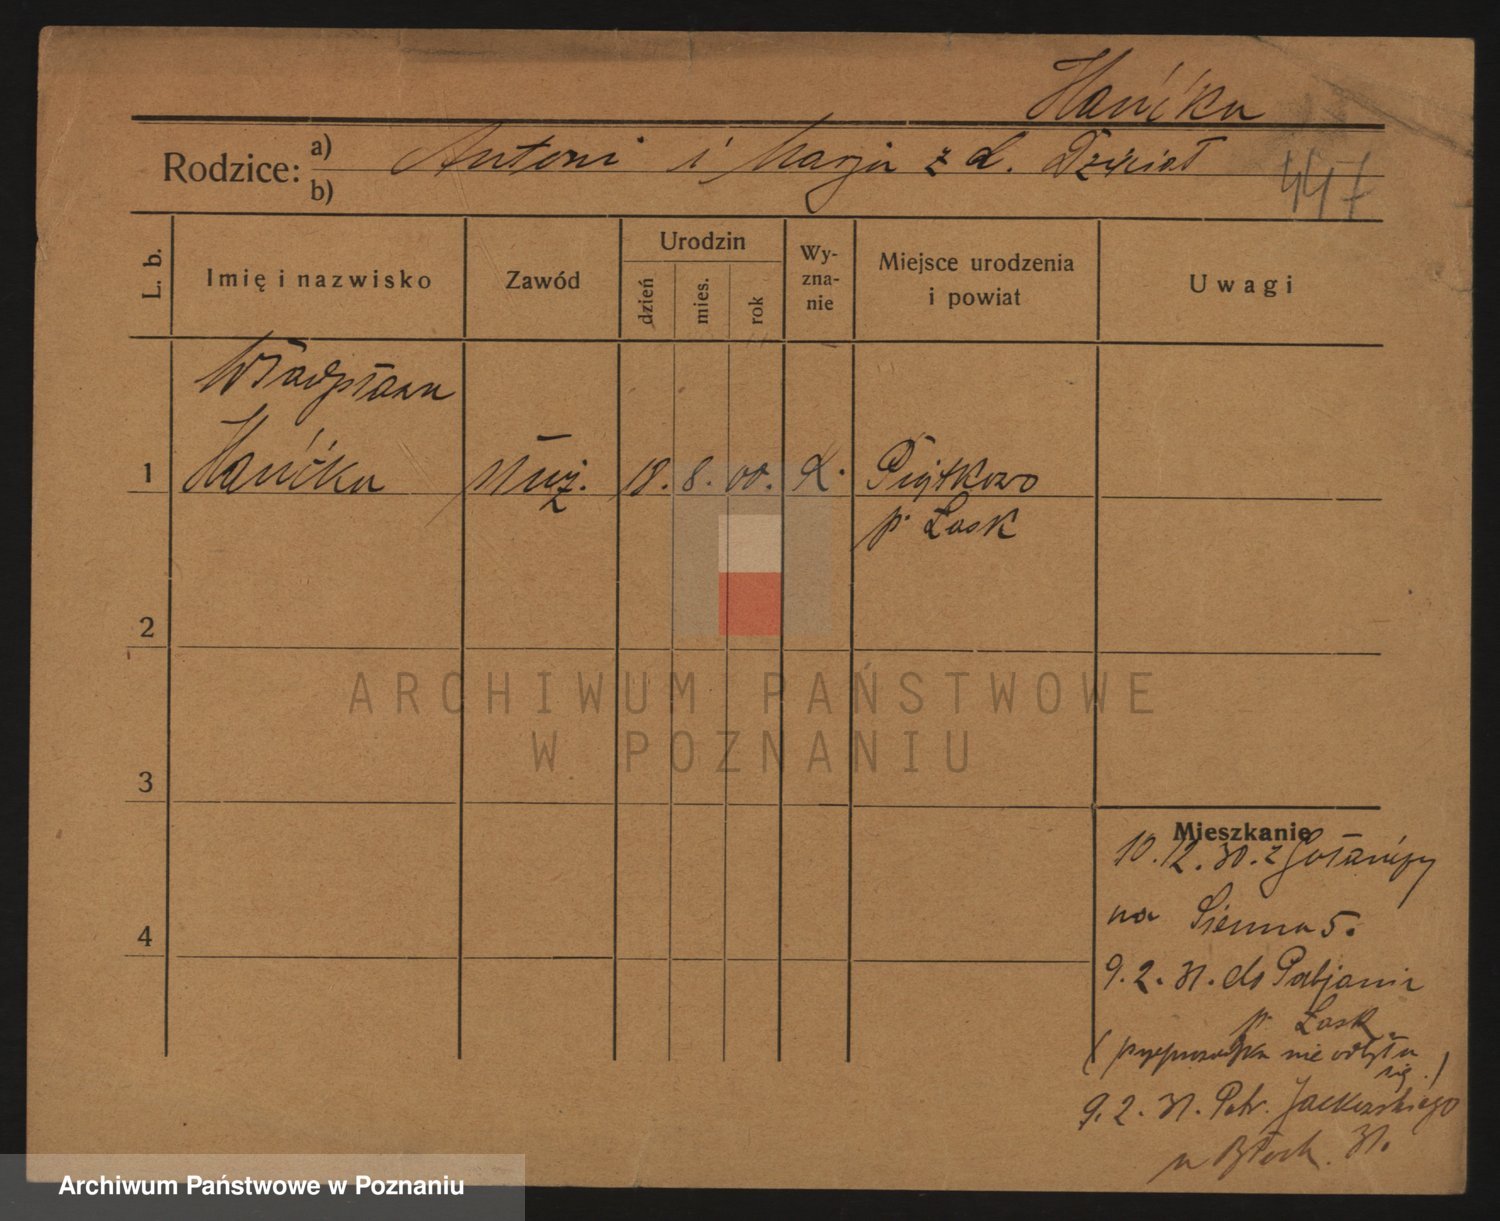 Hańćka
Rodzice: a) Antoni i Marja z d. Dzięciał
b)
447
L. b.
Imię i nazwisko
Zawód
Urodzin
dzień
mies.
rok
Wy-
zna-
nie
Miejsce urodzenia
i powiat
Uwagi
Władysława
1 Hańćka służ. 18. 8. 00. k. Piątkowo
p. Łask
2
ARCHIWUM PAŃSTWOWE
W POZNANIU
3
Mieszkanie
10.12.30. z Gołańczy
na Sienna 5.
4
9.2.31. do Pabjanic
p. Łask
(przeprowadzka nie odbyła
się.)
9.2.31. Pstr. Jackowskiego
u
31.
Archiwum Państwowe w Poznaniu